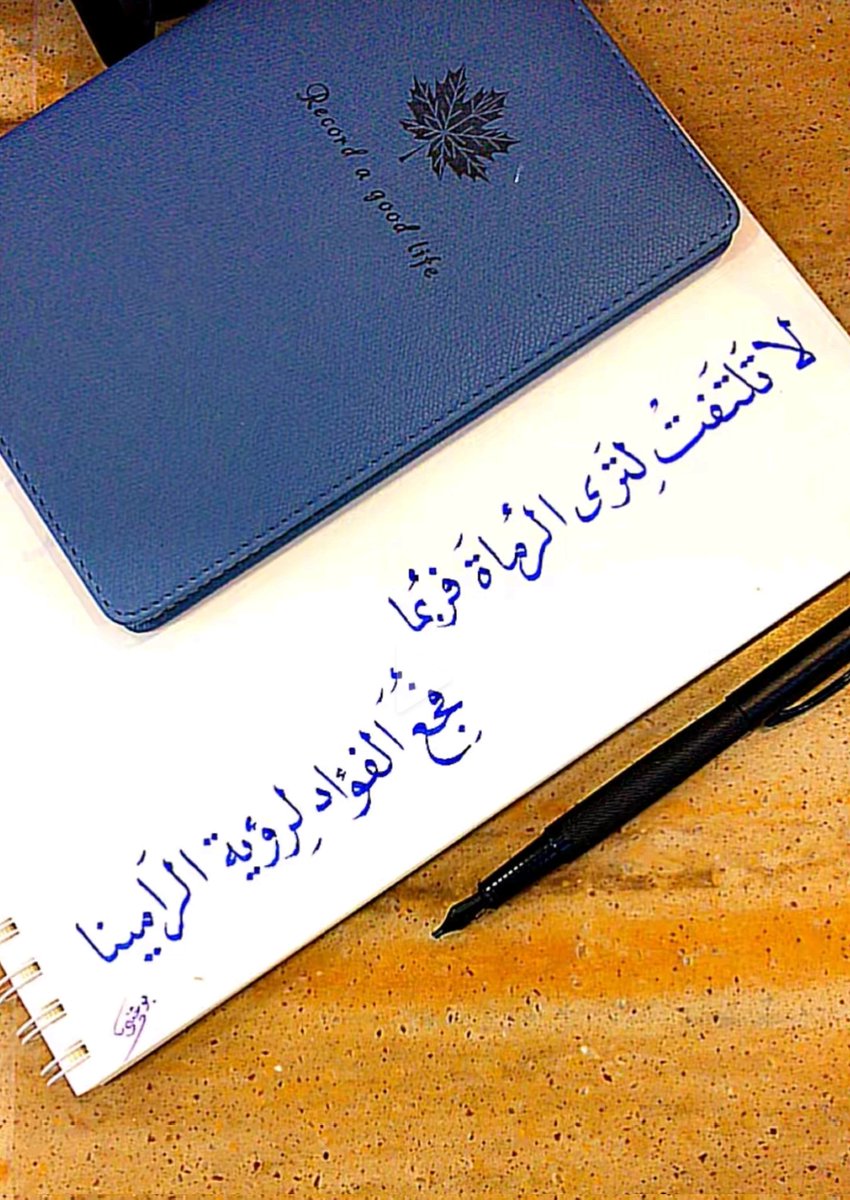 Record a good life
لا تَلتَفَتْ لِتَرَى الرُماةَ فربُما
فُجِعَ الفؤاد لِرؤية الرَامينا